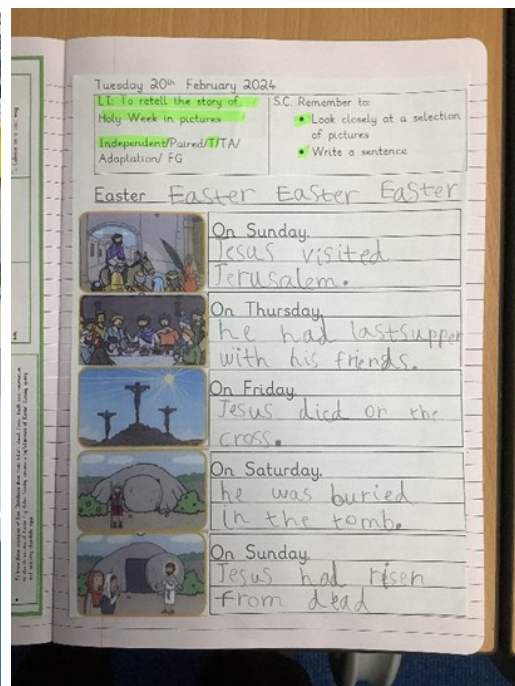 Tuesday 20th February 2024
LI: To retell the story of
Holy Week in pictures
Independent/Paired/T/TA/
Adaptation/ FG
S.C. Remember to:
• Look closely at a selection
of pictures
• Write a sentence
Easter Easter Easter Easter
On Sunday,
Jesus visited
Jerusalem.
On Thursday,
he had lastsupper
with his friends.
On Friday,
Jesus died on the
cross.
On Saturday,
he was buried
in the tomb.
On Sunday,
Jesus had risen
from dead